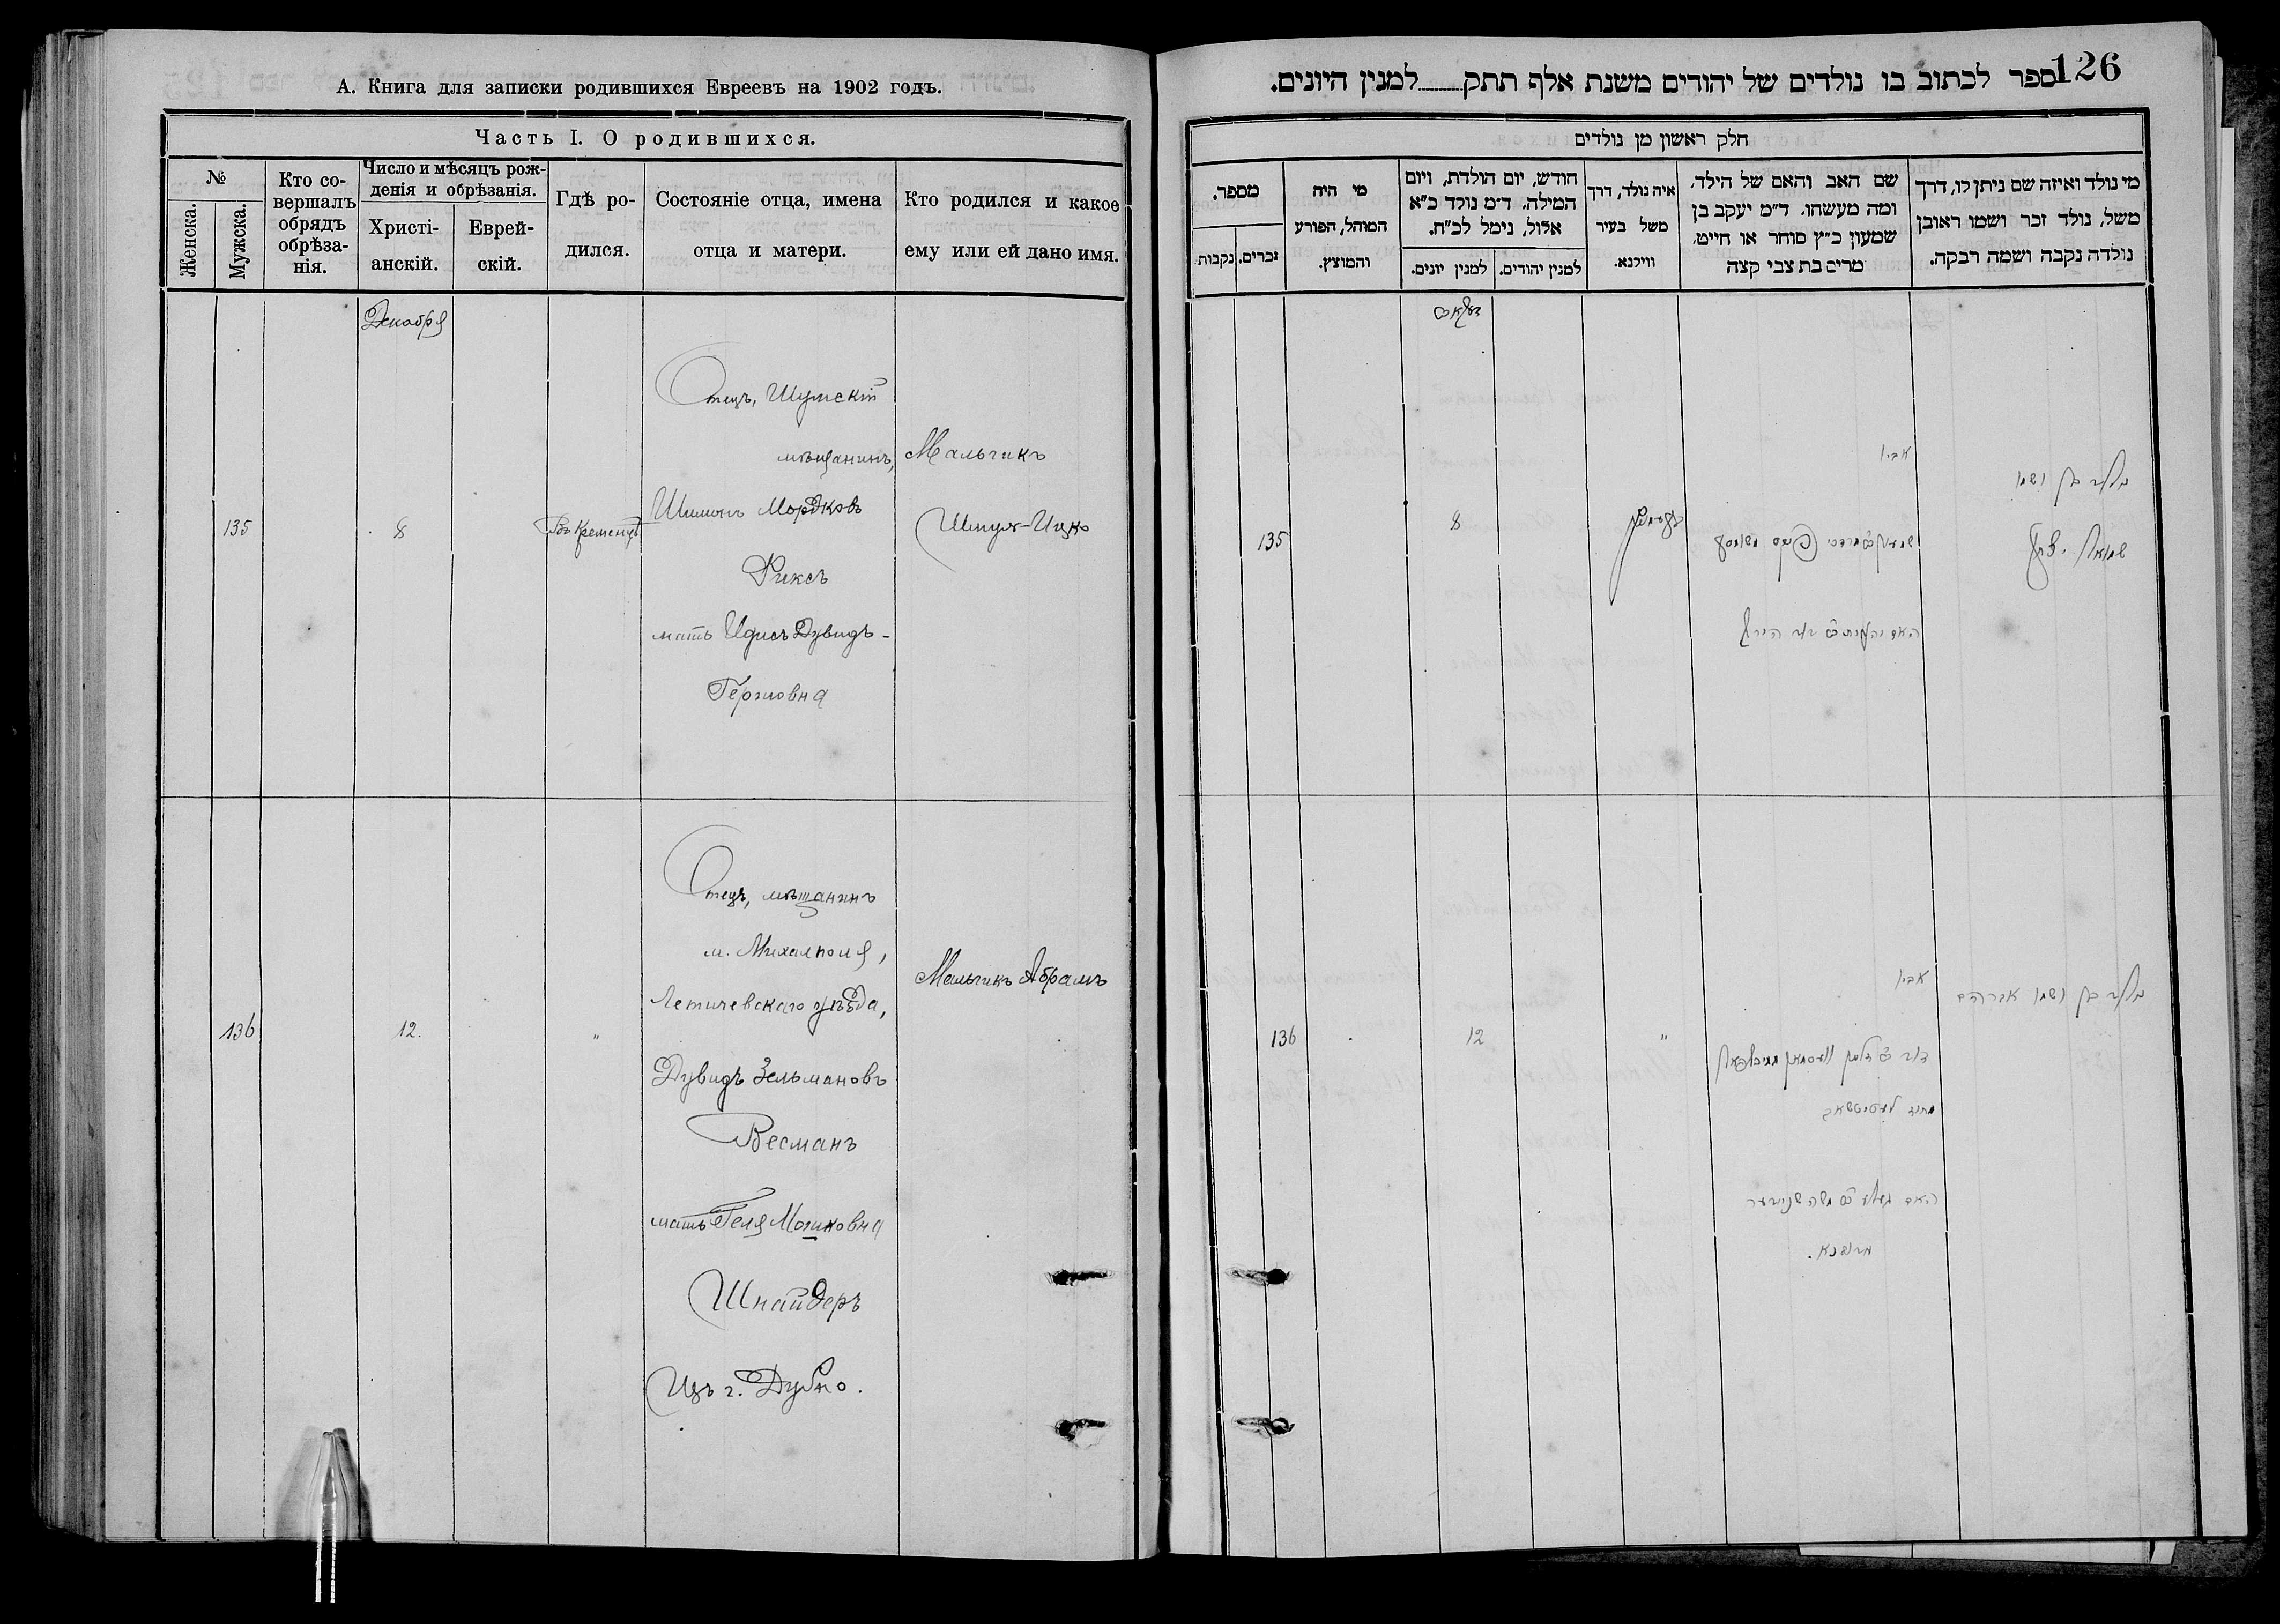 А. Книга для записки родившихся Евреевъ на 1902 годъ.
Часть I. О родившихся.
№
Женска.
Мужска.
Кто со-
вершалъ
обрядъ
обрѣза-
нія.
Число и мѣсяцъ рож-
денія и обрѣзанія.
Христі-
анскій.
Еврей-
скій.
Гдѣ ро-
дился.
Состояніе отца, имена
отца и матери.
Кто родился и какое
ему или ей дано имя.
Декабря
135
8
Въ Кременцѣ
Отецъ, Шумскій
мѣщанинъ,
Шимонъ Мордковъ
Риксъ
мать Идисъ Дувидъ-
Гершовна
Мальчикъ
Шмуль-Ицко
136
12.
"
Отецъ, мѣщанинъ
м. Михалполя,
Летичевскаго уѣзда,
Дувидъ Зельмановъ
Весманъ
мать Геля Мошковна
Шнайдеръ
Изъ г. Дубно.
Мальчикъ Абрамъ
126
ספר לכתוב בו נולדים של יהודים משנת אלף תתק למנין היונים.
חלק ראשון מן נולדים
מי נולד ואיזה שם ניתן לו, דרך
משל, נולד זכר ושמו ראובן
נולדה נקבה ושמה רבקה.
שם האב והאם של הילד,
ומה מעשהו. ד״מ יעקב בן
שמעון כ״ץ סוחר או חייט,
מרים בת צבי קצה
איה נולד, דרך
משל בעיר
ווילנא.
חודש, יום הולדת, ויום
המילה. ד״מ נולד כ״א
אלול, נימל לכ״ח.
למנין יהודים.
למנין יונים.
מי היה
המוהל, הפורע
והמוצץ.
מספר.
זכרים.
נקבות
נולד בן ושמו
שמואל יצחק
אביו
8
135
נולד בן ושמו אברהם
אביו
"
12
136